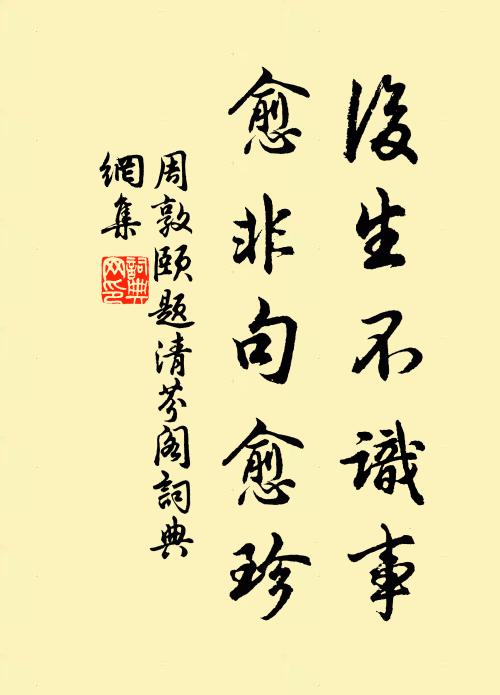 後生不識事
愈非句愈珍
周敦頤題清芬阁詞典
網集
詞典
网印